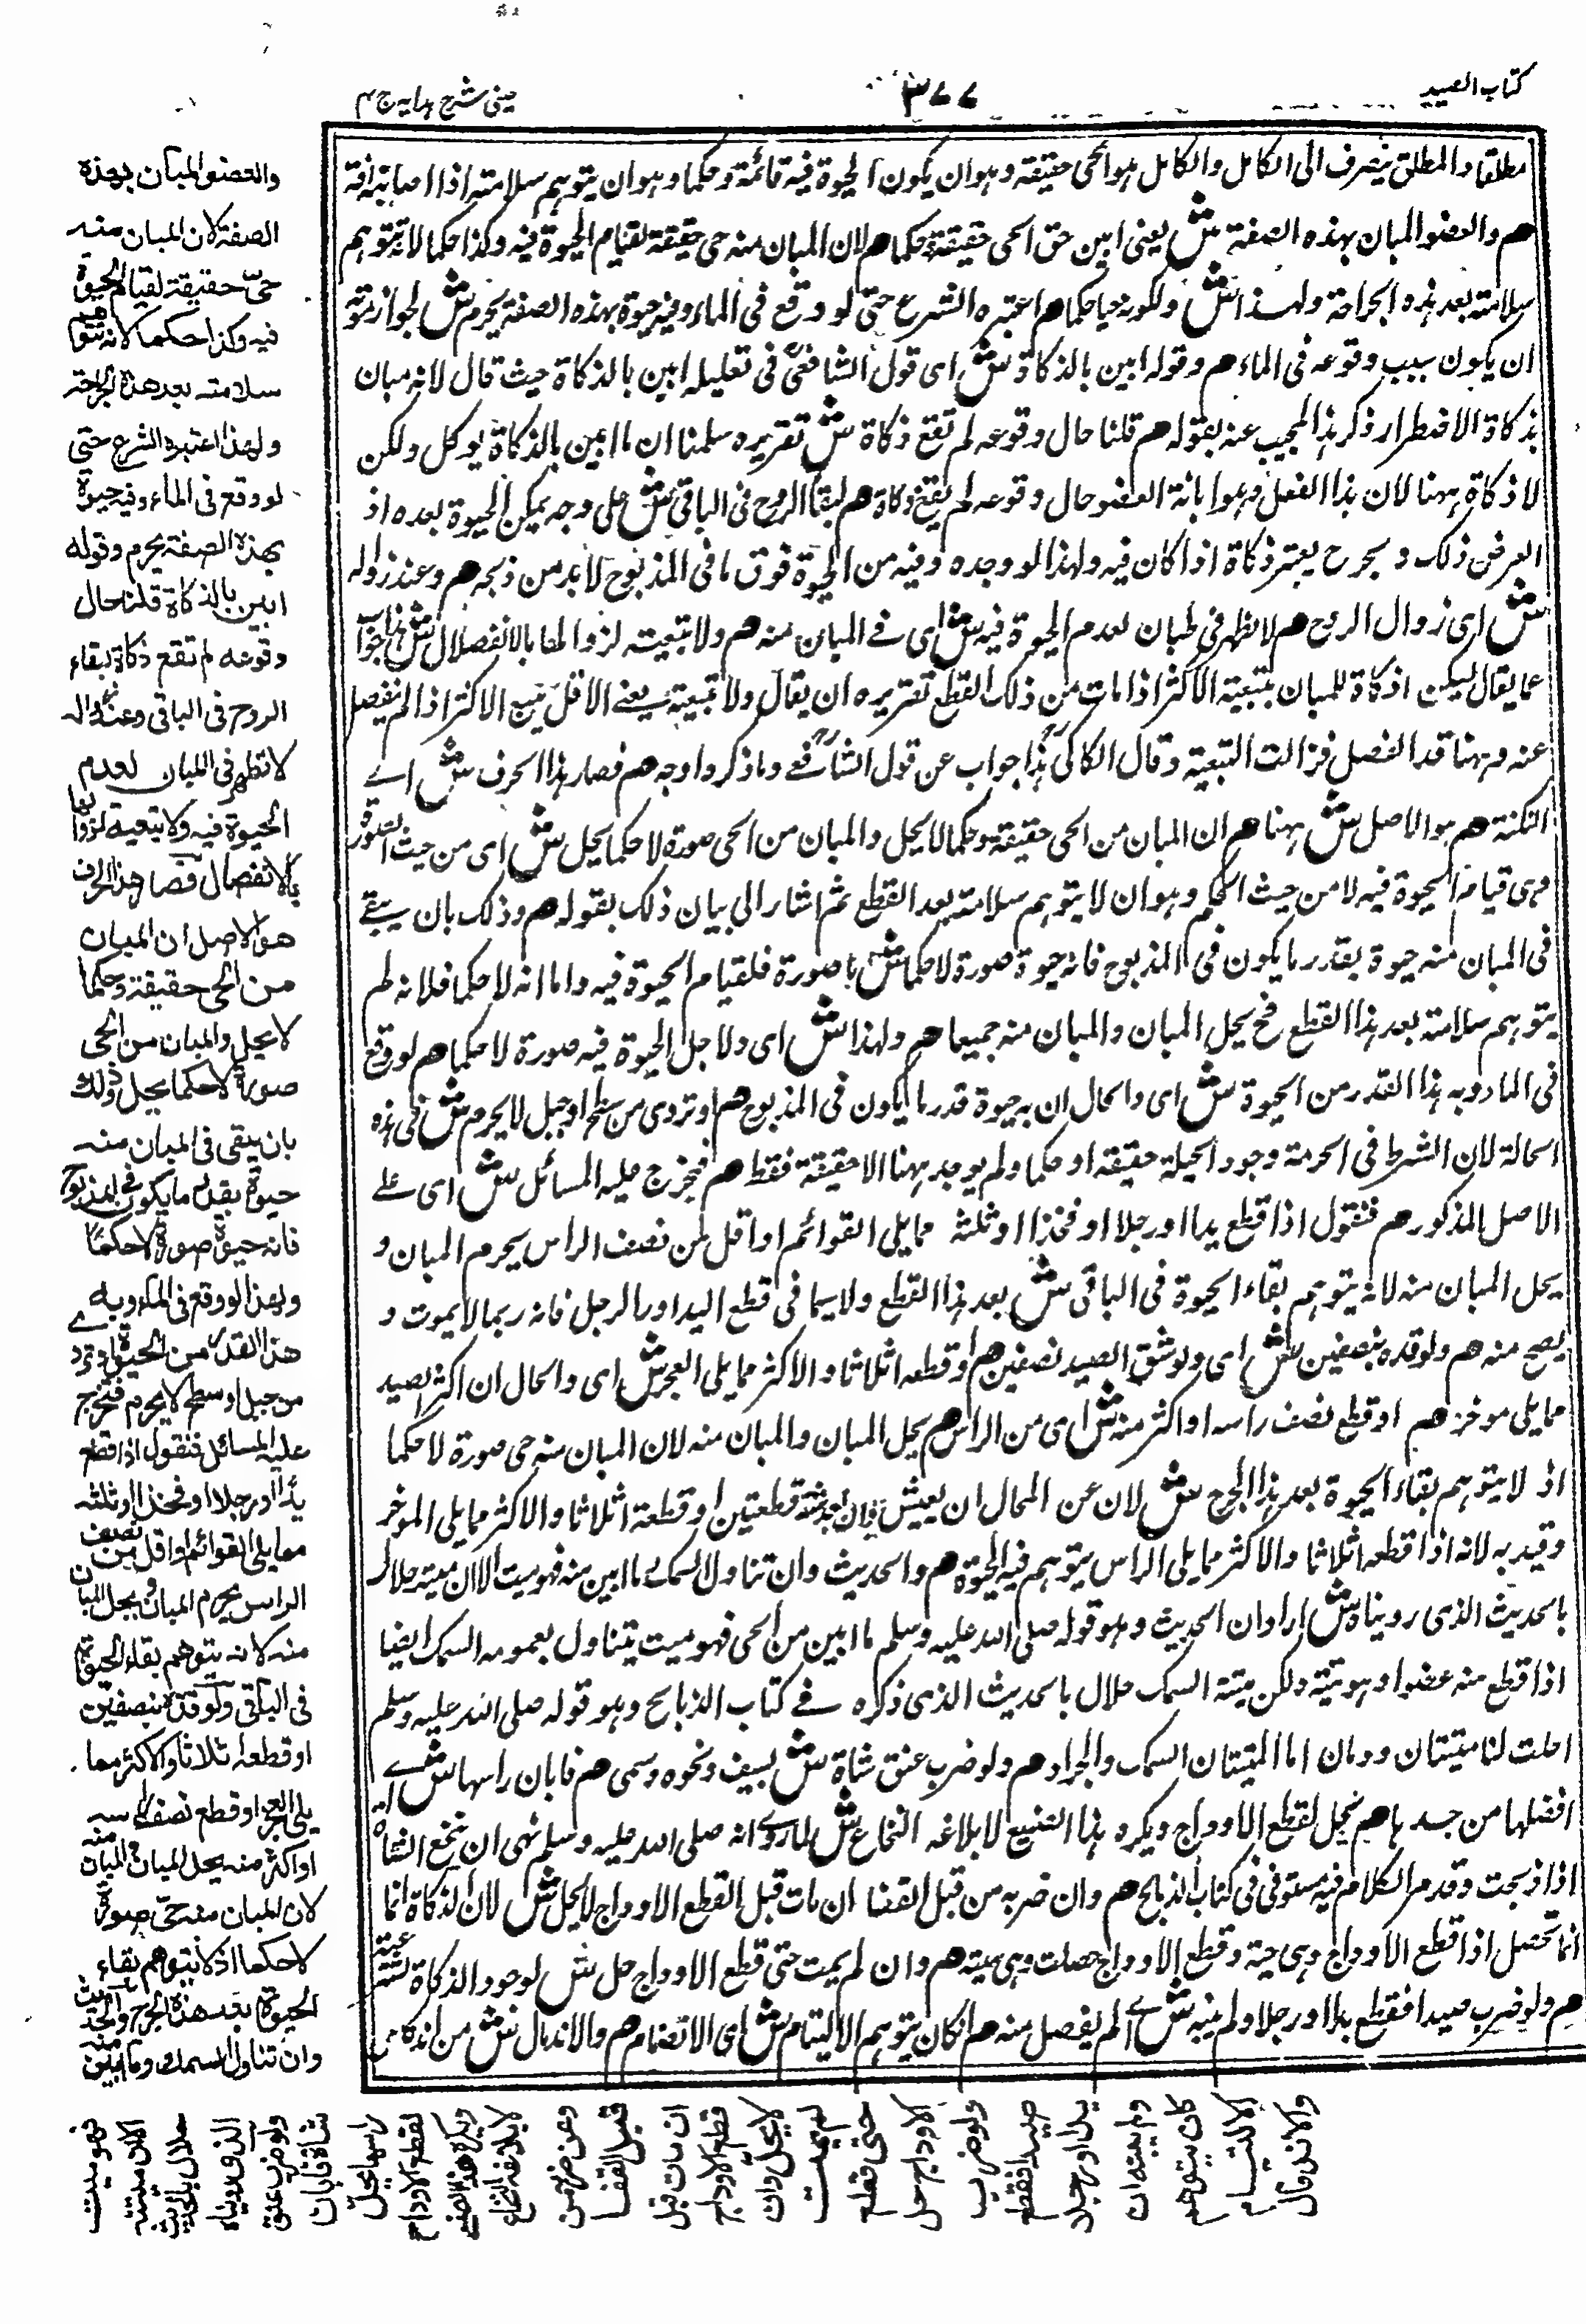 كتاب الصيد
٣٧٧
عينى شرح هدايه ج ٤
مطلقا والمطلق ينصرف الى الكامل والكامل هو الحى حقيقة وهو ان يكون الحيوة فيه قائمة وحكما وهو ان يتوهم سلامته اذا اصابته افة
هم والعضو المبان بهذه الصفة ش يعنى ابين حتى الحى حقيقة وحكما هم لان المبان منه حى حقيقة لقيام الحيوة فيه وكذا حكما لانه يتوهم
سلامته بعد هذه الجراحة ولهذا ش ولكونه حيا حكما هم اعتبره الشرع حتى لو وقع فى الماء وفيه حيوة بهذه الصفة يحرم ش لجواز
ان يكون بسبب وقوعه فى الماء هم وقوله ابين بالذكاة ش اى قول الشافعى فى تعليله ابين بالذكاة حيث قال لانه مبان
بذكاة الاضطرار ذكر هذا المجيب عنه بقوله هم قلنا حال وقوعه لم تقع ذكاة ش تقريره سلمنا ان ما ابين بالذكاة يوكل ولكن
لا ذكاة ههنا لان هذا الفعل وهو ابانة العضو حال وقوعه لم يقع ذكاة هم لبقاء الروح فى الباقى ش على وجه يمكن الحيوة بعده اذ
العرض ذلك و بجرح يعتبر ذكاة اذا كان فيه ولهذا لو وجده وفيه من الحيوة فوق ما فى المذبوح لابد من ذبحه هم وعند زواله
ش اى زوال الروح هم لا يظهر فى المبان لعدم الحيوة فيه ش اى فى المبان منه هم ولا تبعية لزوالها بالانفصال ش هذا جواب
عما يقال ليكن اذ كاة للمبان بتبعية الاكثر اذا مات من ذلك القطع تقريره ان يقال ولا تبعية يعنى الاقل يتبع الاكثر اذا لم ينفصل
عنه وههنا قد انفصل فزالت التبعية وقال الكاكى هذا جواب عن قول الشافعى وما ذكروا وجه هم فصار هذا الحرف ش اے
النكتة هم هو الاصل ش ههنا هم ان المبان من الحى حقيقة وحكما لا يحل والمبان من الحى صورة لا حكما يحل ش اى من حيث الصورة
وهى قيام الحيوة فيه لا من حيث الحكم وهو ان لا يتوهم سلامته بعد القطع ثم اشار الى بيان ذلك بقوله هم وذلك بان يبقے
فى المبان منه حيوة بقدر ما يكون فى المذبوح فانه حيوة صورة لا حكما ش اما صورة فلقيام الحيوة فيه واما انه لا حكما فلانه لم
يتوهم سلامته بعد هذا القطع فح يحل المبان والمبان منه جميعا هم ولهذا ش اى ولاجل الحيوة فيه صورة لا حكما هم لو وقع
فى الماء وبه هذا القدر من الحيوة ش اى والحال ان به حيوة قدر ما يكون فى المذبوح هم او تردى من سطح او جبل لا يحرم ش فى هذه
الحالة لان الشرط فى الحرمة وجود الحيلة حقيقة او حكما ولم يوجد ههنا الا حقيقة فقط هم فخرج عليه المسائل ش اى على
الاصل المذكور هم فنقول اذا قطع يدا او رجلا او فخذا او ثلثه مما يلى القوائم او اقل من نصف الراس يحرم المبان و
يحل المبان منه لانه يتوهم بقاء الحيوة فى الباقى ش بعد هذا القطع ولا سيما فى قطع اليد او الرجل فانه ربما لا يموت و
يصح منه هم ولو قده بنصفين ش اى ولو شق الصيد نصفين هم او قطعه اثلاثا والاكثر مما يلى العجز ش اى والحال ان اكثر الصيد
مما يلى موخره هم او قطع نصف راسه او اكثر منه ش اى من الراس هم يحل المبان والمبان منه لان المبان منه حى صورة لا حكما
اذ لا يتوهم بقاء الحيوة بعد هذا الجرح ش لان عن المحال ان يعيش قطعتين او قطعة اثلاثا والاكثر مما يلى الموخر
وقيد به لانه اذا قطعه اثلاثا والاكثر مما يلى الراس يتوهم فيه الحيوة هم والحديث وان تناول السمك ما ابين منه فهو ميت الا ان ميتته حلال
بالحديث الذى رويناه ش اراد ان الحديث وهو قوله صلى الله عليه وسلم ما ابين من الحى فهو ميت يتناول بعمومه السمك ايضا
اذا قطع منه عضوا وهو ميتة ولكن ميتة السمك حلال بالحديث الذى ذكره فى كتاب الذبائح وهو قوله صلى الله عليه وسلم
احلت لنا ميتتان ودمان اما الميتتان السمك والجراد هم ولو ضرب عنق شاة ش بسيف ونحوه وسمى هم فابان راسها ش اى
افصلها من جسدها هم يحل لقطع الاوداج ويكره هذا الصنيع لابلاغه النخاع ش لما روى انه صلى الله عليه وسلم نهى ان تنخع الشاة
اذا ذبحت وقد مر الكلام فيه مستوفى فى كتاب الذبائح هم وان ضربه من قبل القفا ان مات قبل القطع الاوداج لا يحل ش لان الذكاة انما
انما تحصل اذا قطع الاوداج وهى حية وقطع الاوداج حصلت وهى ميتة هم وان لم يمت حتى قطع الاوداج حل ش لوجود الذكاة
هم ولو ضرب صيدا فقطع يدا او رجلا ولم يبنه ش اى لم يفصل منه هم ان كان يتوهم الالتيام ش اى الانضمام هم والاندمال ش من
والعضو المبان بهذه
الصفة لان المبان منه
حىّ حقيقة لقيام الحيوة
فيه وكذا حكما لانه يتوهم
سلامته بعد هذه الجراحة
ولهذا اعتبره الشرع حتى
لو وقع فى الماء وفيه حيوة
بهذه الصفة يحرم وقوله
ابين بالذكاة قلنا حال
وقوعه لم تقع ذكاة لبقاء
الروح فى الباقى وعند زواله
لا تظهر فى المبان لعدم
الحيوة فيه ولا تبعية لزوالها
بالانفصال فصار هذا الحرف
هو الاصل ان المبان
من الحى حقيقة وحكما
لا يحل والمبان من الحى
صورة لا حكما يحل وذلك
بان يبقى فى المبان منه
حيوة بقدر ما يكون فى المذبوح
فانه حيوة صورة لا حكما
ولهذا لو وقع فى الماء وبه
هذا القدر من الحيوة او تردى
من جبل او سطح لا يحرم فتخرج
عليه المسائل فنقول اذا قطع
يدا او رجلا او فخذا او ثلثه
مما يلى القوائم او اقل من نصف
الراس يحرم المبان ويحل المبان
منه لانه يتوهم بقاء الحيوة
فى الباقى ولو قده بنصفين
او قطعه اثلاثا والاكثر مما
يلى العجز او قطع نصف راسه
او اكثر منه يحل المبان والمبان منه
لان المبان منه حىّ صورة
لا حكما اذ لا يتوهم بقاء
الحيوة بعد هذا الجرح والحديث
وان تناول السمك وما ابين منه
فهو ميت
الا ان ميتته
حلال بالحديث
الذى رويناه
ولو ضرب عنق
شاة فابان
راسها يحل
لقطع الاوداج
ويكره هذا الصنيع
لابلاغه النخاع
وعن ضربه من
قبل القفا
ان مات قبل
قطع الاوداج
لا يحل وان
لم يمت
حتى قطع
الاوداج حل
ولو ضرب
صيدا فقطع
يدا او رجلا
ولم يبنه ان
كان يتوهم
الالتيام
والاندمال